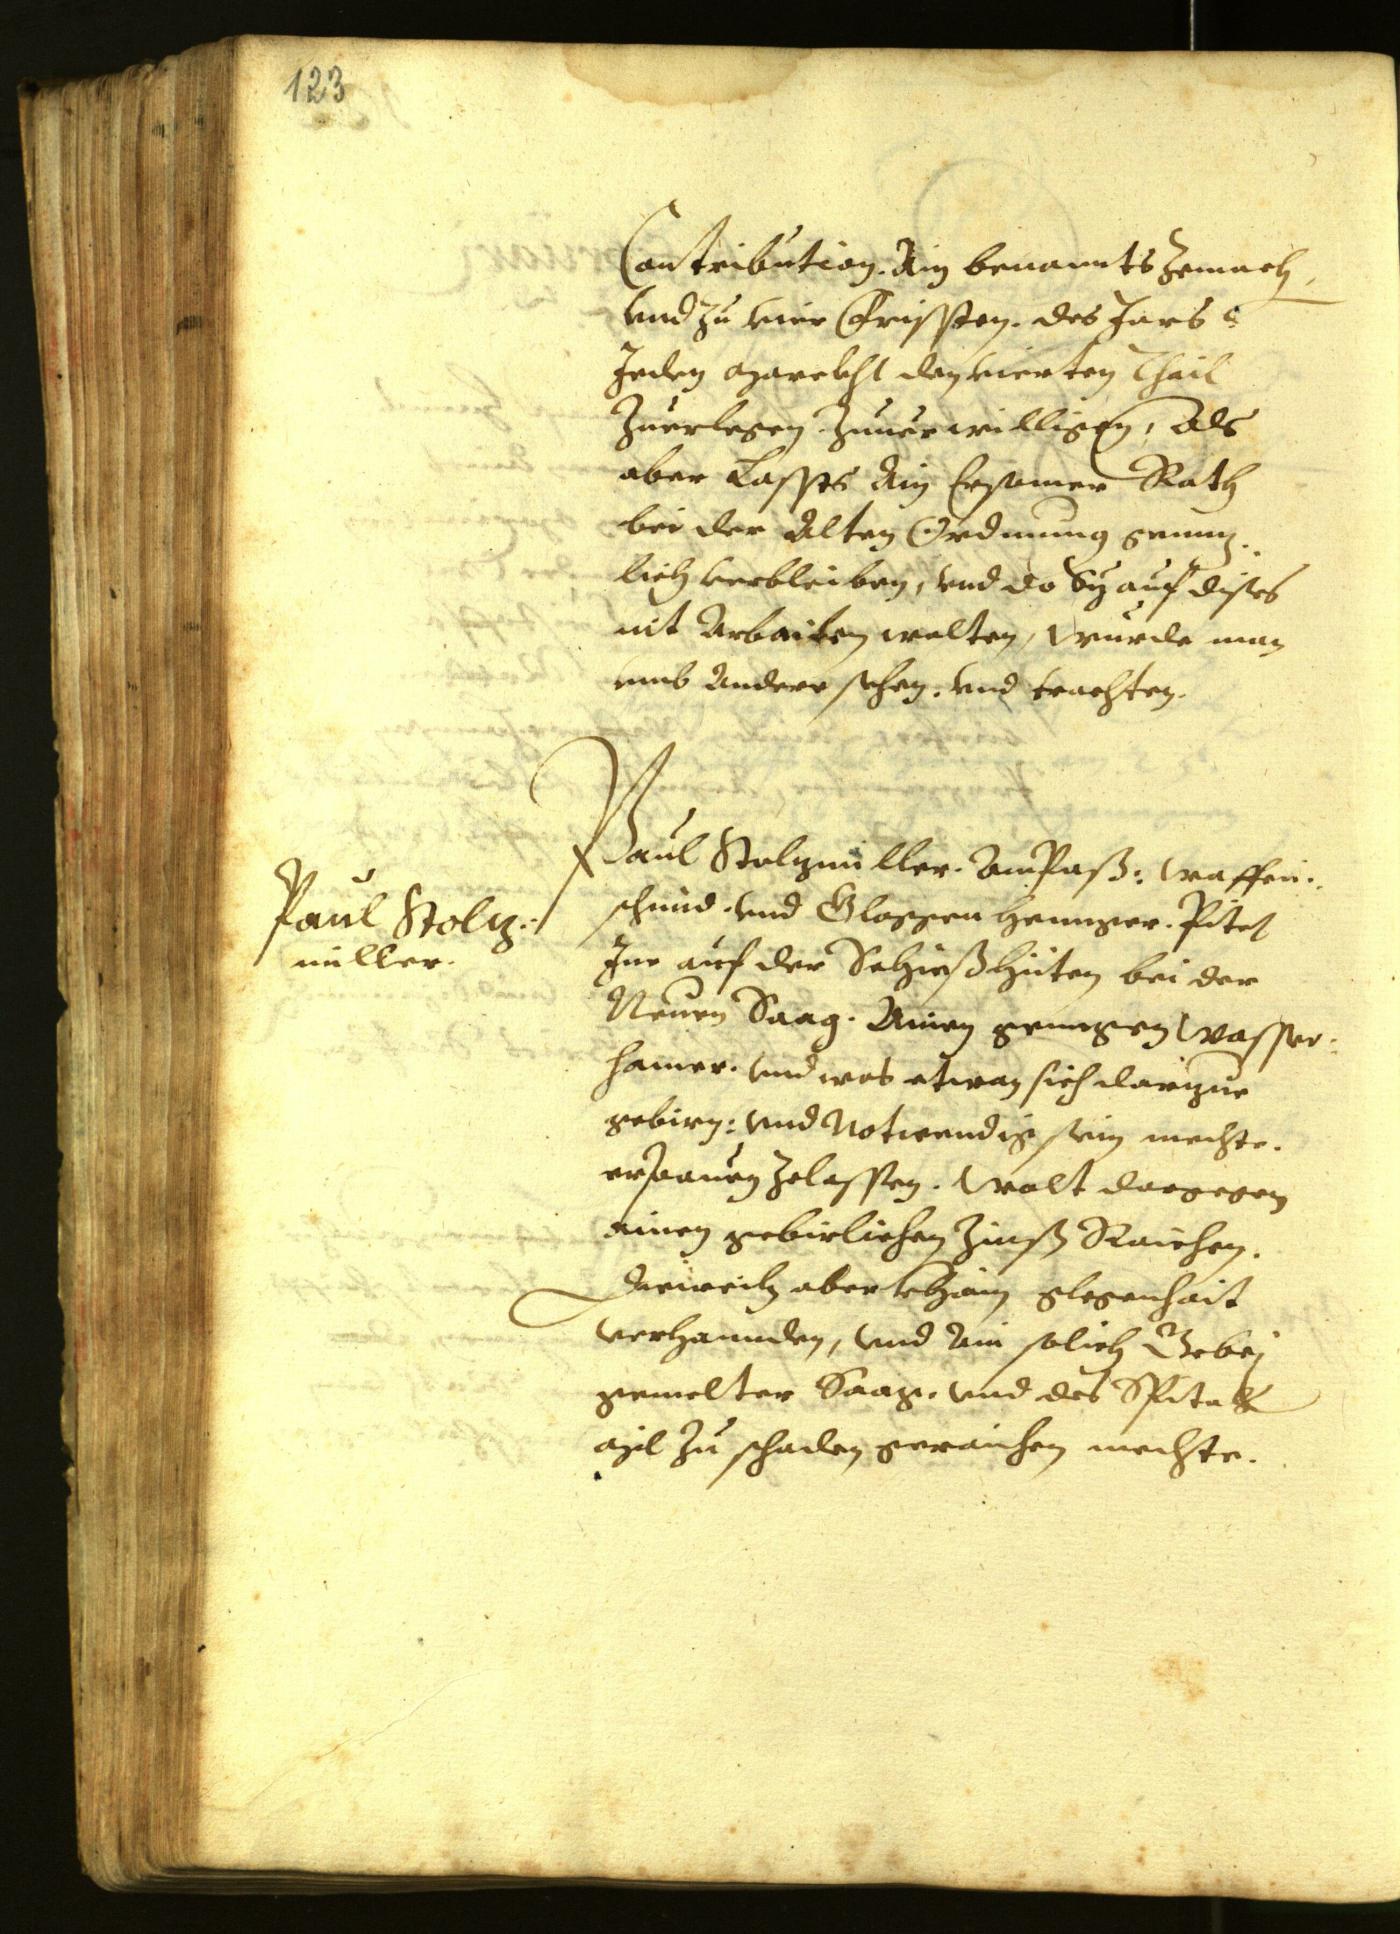 123
Contribution. Ain benannts Zemach,
vnd zu vier Fryssten. des Jars
Jeden Marckht den vierten Thail
Zuerlegen Zuuerwilligen, Als
aber Lassts Ain Ersamer Rath
bei der Alten Ordnung gennz„
lich verbleiben, vnd do Sy auf dises
nit Arbaiten wolten, wurde man
vmb Andere sehen. vnd trachten.
Paul Stolz„
miller.
Paul Stolzmüller. AmPaß: Waffen„
schmid. vnd Gloggen Henngger. Pitet
Ime auf der Schießhüten bei der
Neuen Saag. Ainen geringen Wasser„
hamer. vnd was etwan sich darzue
gebirn: vnd Notwendig sein mechte.
erpauen Zelassen. Wolt dargegen
ainen gebirlichen Zinß Raichen.
Dieweil aber khain glegenhait
verhannden, vnd Ain solich Gebey
gemelter Saag. vnd des Spitals
Mil Zu schaden geraichen mechte.